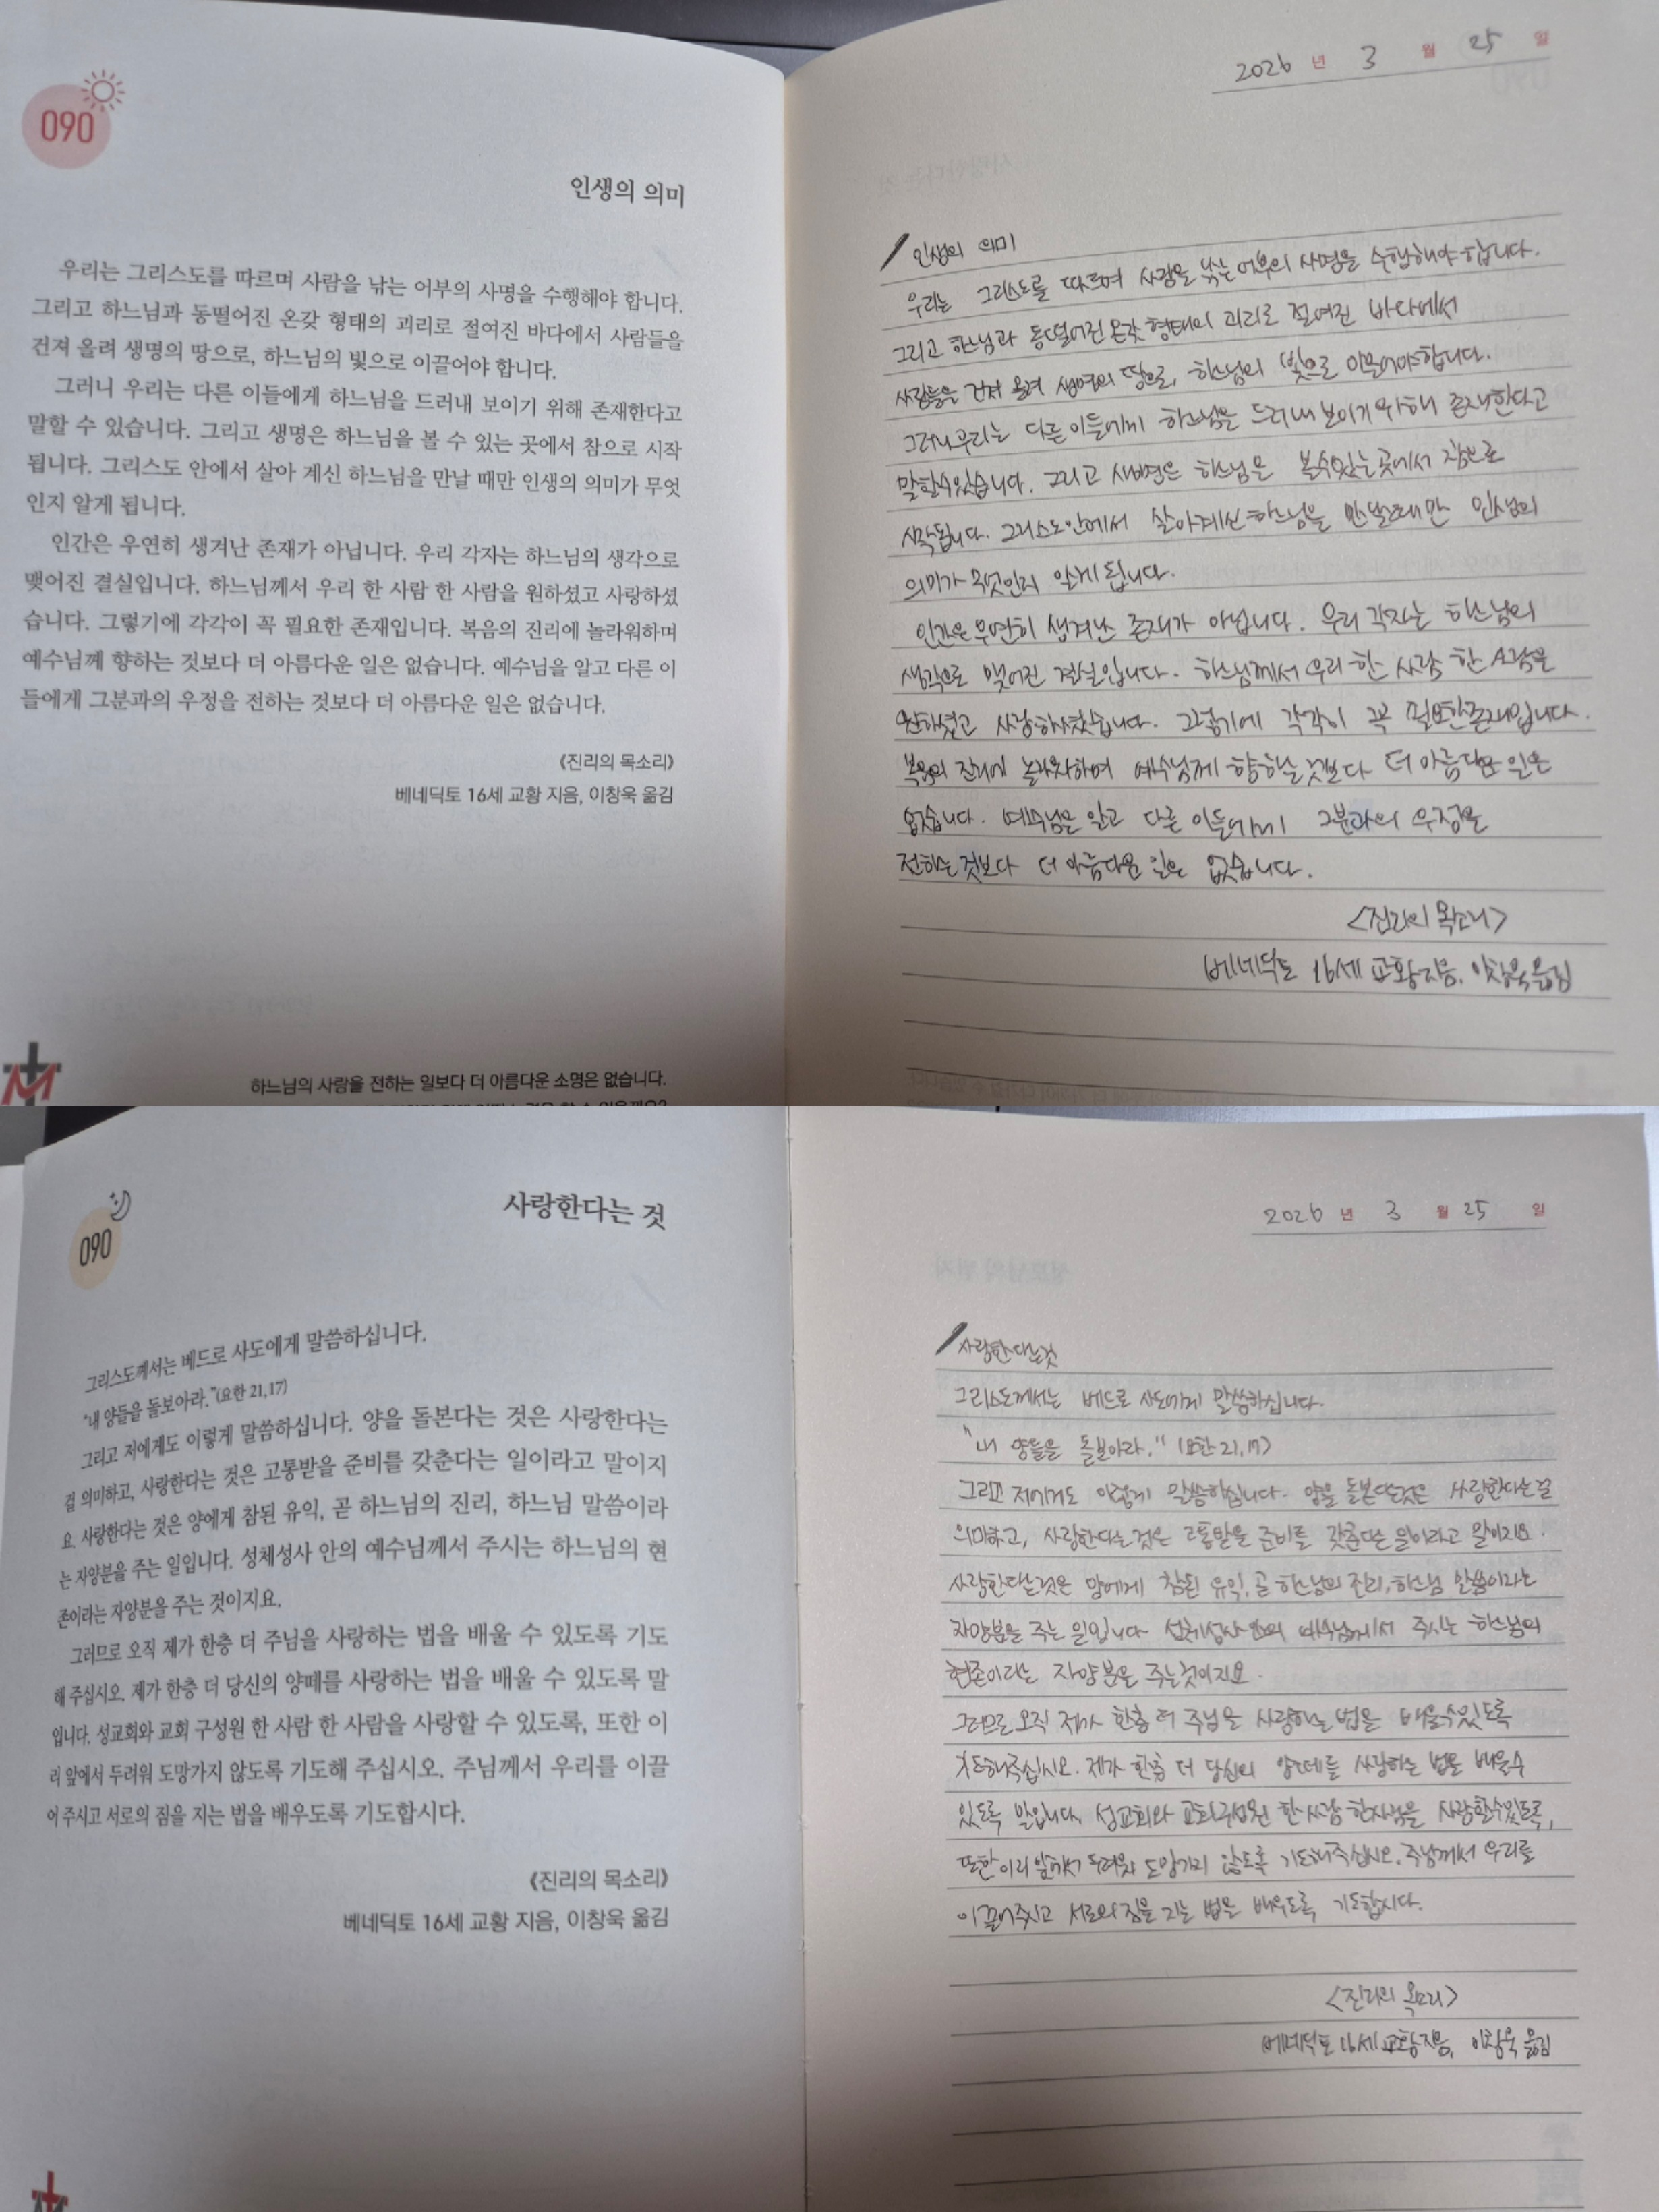 090
인생의 의미
우리는 그리스도를 따르며 사람을 낚는 어부의 사명을 수행해야 합니다.
그리고 하느님과 동떨어진 온갖 형태의 괴리로 절여진 바다에서 사람들을
건져 올려 생명의 땅으로, 하느님의 빛으로 이끌어야 합니다.
그러니 우리는 다른 이들에게 하느님을 드러내 보이기 위해 존재한다고
말할 수 있습니다. 그리고 생명은 하느님을 볼 수 있는 곳에서 참으로 시작
됩니다. 그리스도 안에서 살아 계신 하느님을 만날 때만 인생의 의미가 무엇
인지 알게 됩니다.
인간은 우연히 생겨난 존재가 아닙니다. 우리 각자는 하느님의 생각으로
맺어진 결실입니다. 하느님께서 우리 한 사람 한 사람을 원하셨고 사랑하셨
습니다. 그렇기에 각각이 꼭 필요한 존재입니다. 복음의 진리에 놀라워하며
예수님께 향하는 것보다 더 아름다운 일은 없습니다. 예수님을 알고 다른 이
들에게 그분과의 우정을 전하는 것보다 더 아름다운 일은 없습니다.
《진리의 목소리》
베네딕토 16세 교황 지음, 이창욱 옮김
하느님의 사랑을 전하는 일보다 더 아름다운 소명은 없습니다.
2026 년 3 월 25 일
인생의 의미
우리는 그리스도를 따르며 사람을 낚는 어부의 사명을 수행해야 합니다.
그리고 하느님과 동떨어진 온갖 형태의 괴리로 절여진 바다에서
사람들을 건져 올려 생명의 땅으로, 하느님의 빛으로 이끌어야합니다.
그러니 우리는 다른 이들에게 하느님을 드러내 보이기 위해 존재한다고
말할수있습니다. 그리고 생명은 하느님을 볼수있는 곳에서 참으로
시작됩니다. 그리스도안에서 살아계신 하느님을 만날때만 인생의
의미가 무엇인지 알게 됩니다.
인간은 우연히 생겨난 존재가 아닙니다. 우리 각자는 하느님의
생각으로 맺어진 결실입니다. 하느님께서 우리 한 사람 한 사람을
원하셨고 사랑하셨습니다. 그렇기에 각각이 꼭 필요한존재입니다.
복음의 진리에 놀라워하며 예수님께 향하는 것보다 더 아름다운 일은
없습니다. 예수님을 알고 다른 이들에게 그분과의 우정을
전하는 것보다 더 아름다운 일은 없습니다.
<진리의 목소리>
베네딕토 16세 교황지음, 이창욱옮김
090
사랑한다는 것
그리스도께서는 베드로 사도에게 말씀하십니다.
"내 양들을 돌보아라."(요한 21,17)
그리고 저에게도 이렇게 말씀하십니다. 양을 돌본다는 것은 사랑한다는
걸 의미하고, 사랑한다는 것은 고통받을 준비를 갖춘다는 일이라고 말이지
요. 사랑한다는 것은 양에게 참된 유익, 곧 하느님의 진리, 하느님 말씀이라
는 자양분을 주는 일입니다. 성체성사 안의 예수님께서 주시는 하느님의 현
존이라는 자양분을 주는 것이지요.
그러므로 오직 제가 한층 더 주님을 사랑하는 법을 배울 수 있도록 기도
해 주십시오. 제가 한층 더 당신의 양떼를 사랑하는 법을 배울 수 있도록 말
입니다. 성교회와 교회 구성원 한 사람 한 사람을 사랑할 수 있도록, 또한 이
리 앞에서 두려워 도망가지 않도록 기도해 주십시오. 주님께서 우리를 이끌
어 주시고 서로의 짐을 지는 법을 배우도록 기도합시다.
《진리의 목소리》
베네딕토 16세 교황 지음, 이창욱 옮김
2026 년 3 월 25 일
사랑한다는것
그리스도께서는 베드로 사도에게 말씀하십니다.
"내 양들을 돌보아라." (요한 21,17)
그리고 저에게도 이렇게 말씀하십니다. 양을 돌본다는것은 사랑한다는걸
의미하고, 사랑한다는 것은 고통받을 준비를 갖춘다는 일이라고 말이지요.
사랑한다는것은 양에게 참된 유익, 곧 하느님의 진리, 하느님 말씀이라는
자양분을 주는 일입니다 성체성사 안의 예수님께서 주시는 하느님의
현존이라는 자양분을 주는것이지요.
그러므로 오직 제가 한층 더 주님을 사랑하는 법을 배울수있도록
기도해주십시오. 제가 한층 더 당신의 양떼를 사랑하는 법을 배울수
있도록 말입니다. 성교회와 교회구성원 한 사람 한사람을 사랑할수있도록,
또한 이리 앞에서 두려워 도망가지 않도록 기도해주십시오. 주님께서 우리를
이끌어주시고 서로의 짐을 지는 법을 배우도록 기도합시다.
<진리의 목소리>
베네딕토 16세 교황지음, 이창욱 옮김